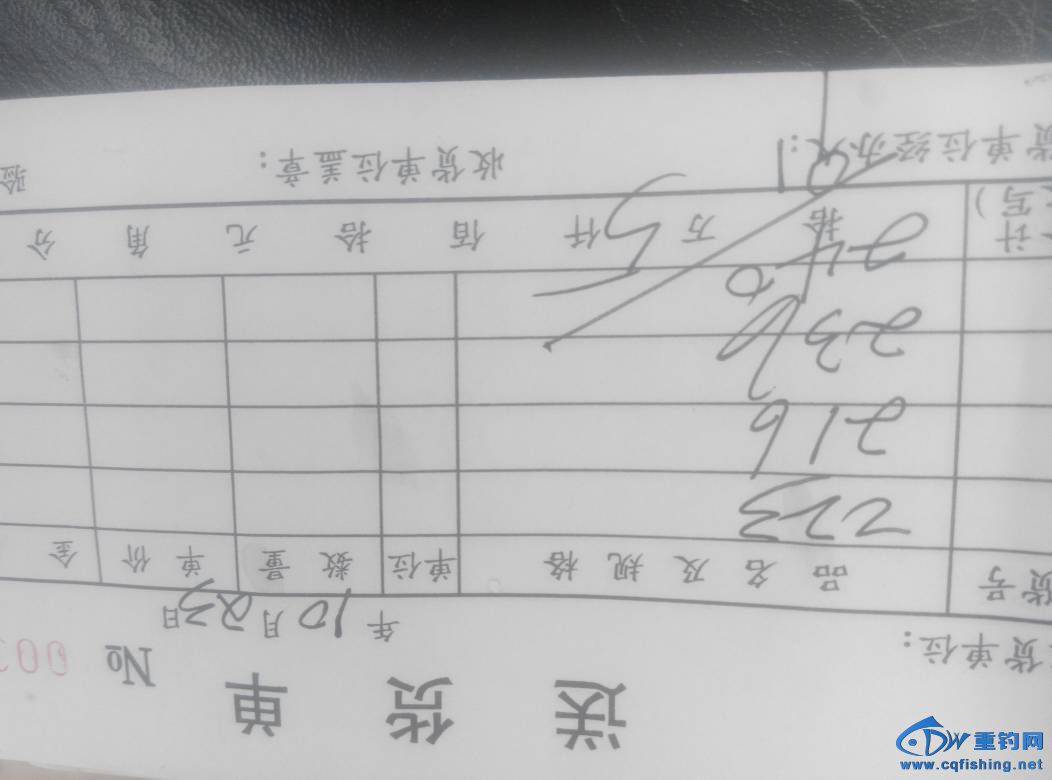 送 货 单 № 003
货单位：
年 10 月 23 日
货号 品 名 及 规 格 单位 数 量 单 价 金
223
216
计
写） 拾 万 仟 佰 拾 元 角 分
货单位经办人： 收货单位盖章： 验
重钓网
www.cqfishing.net